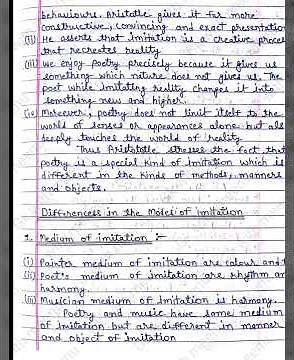 behaviours. Aristotle gives it far more
constructive, convincing and exact presentatio
(ii) He asserts that Imitation is a creative proce
that recreates reality
(iii) We enjoy poetry precisely because it gives us
something which nature does not gives us. The
poet while imitating reality changes it into
something new and higher.
(iv) Moreover, poetry does not limit itself to the
world of senses or appearances alone but als
deeply touches the world of reality
Thus Aristotle stresses the fact that
poetry is a special kind of imitation which is
different in the kinds of methods, manners
and objects.
Differences in the Modes of Imitation
1. Medium of imitation :-
(i) Painter medium of imitation are colour and
(ii) Poet's medium of imitation are rhythm an
harmony.
(iii) Musician medium of imitation is harmony.
Poetry and music have same medium
of imitation but are different in manner
and object of imitation